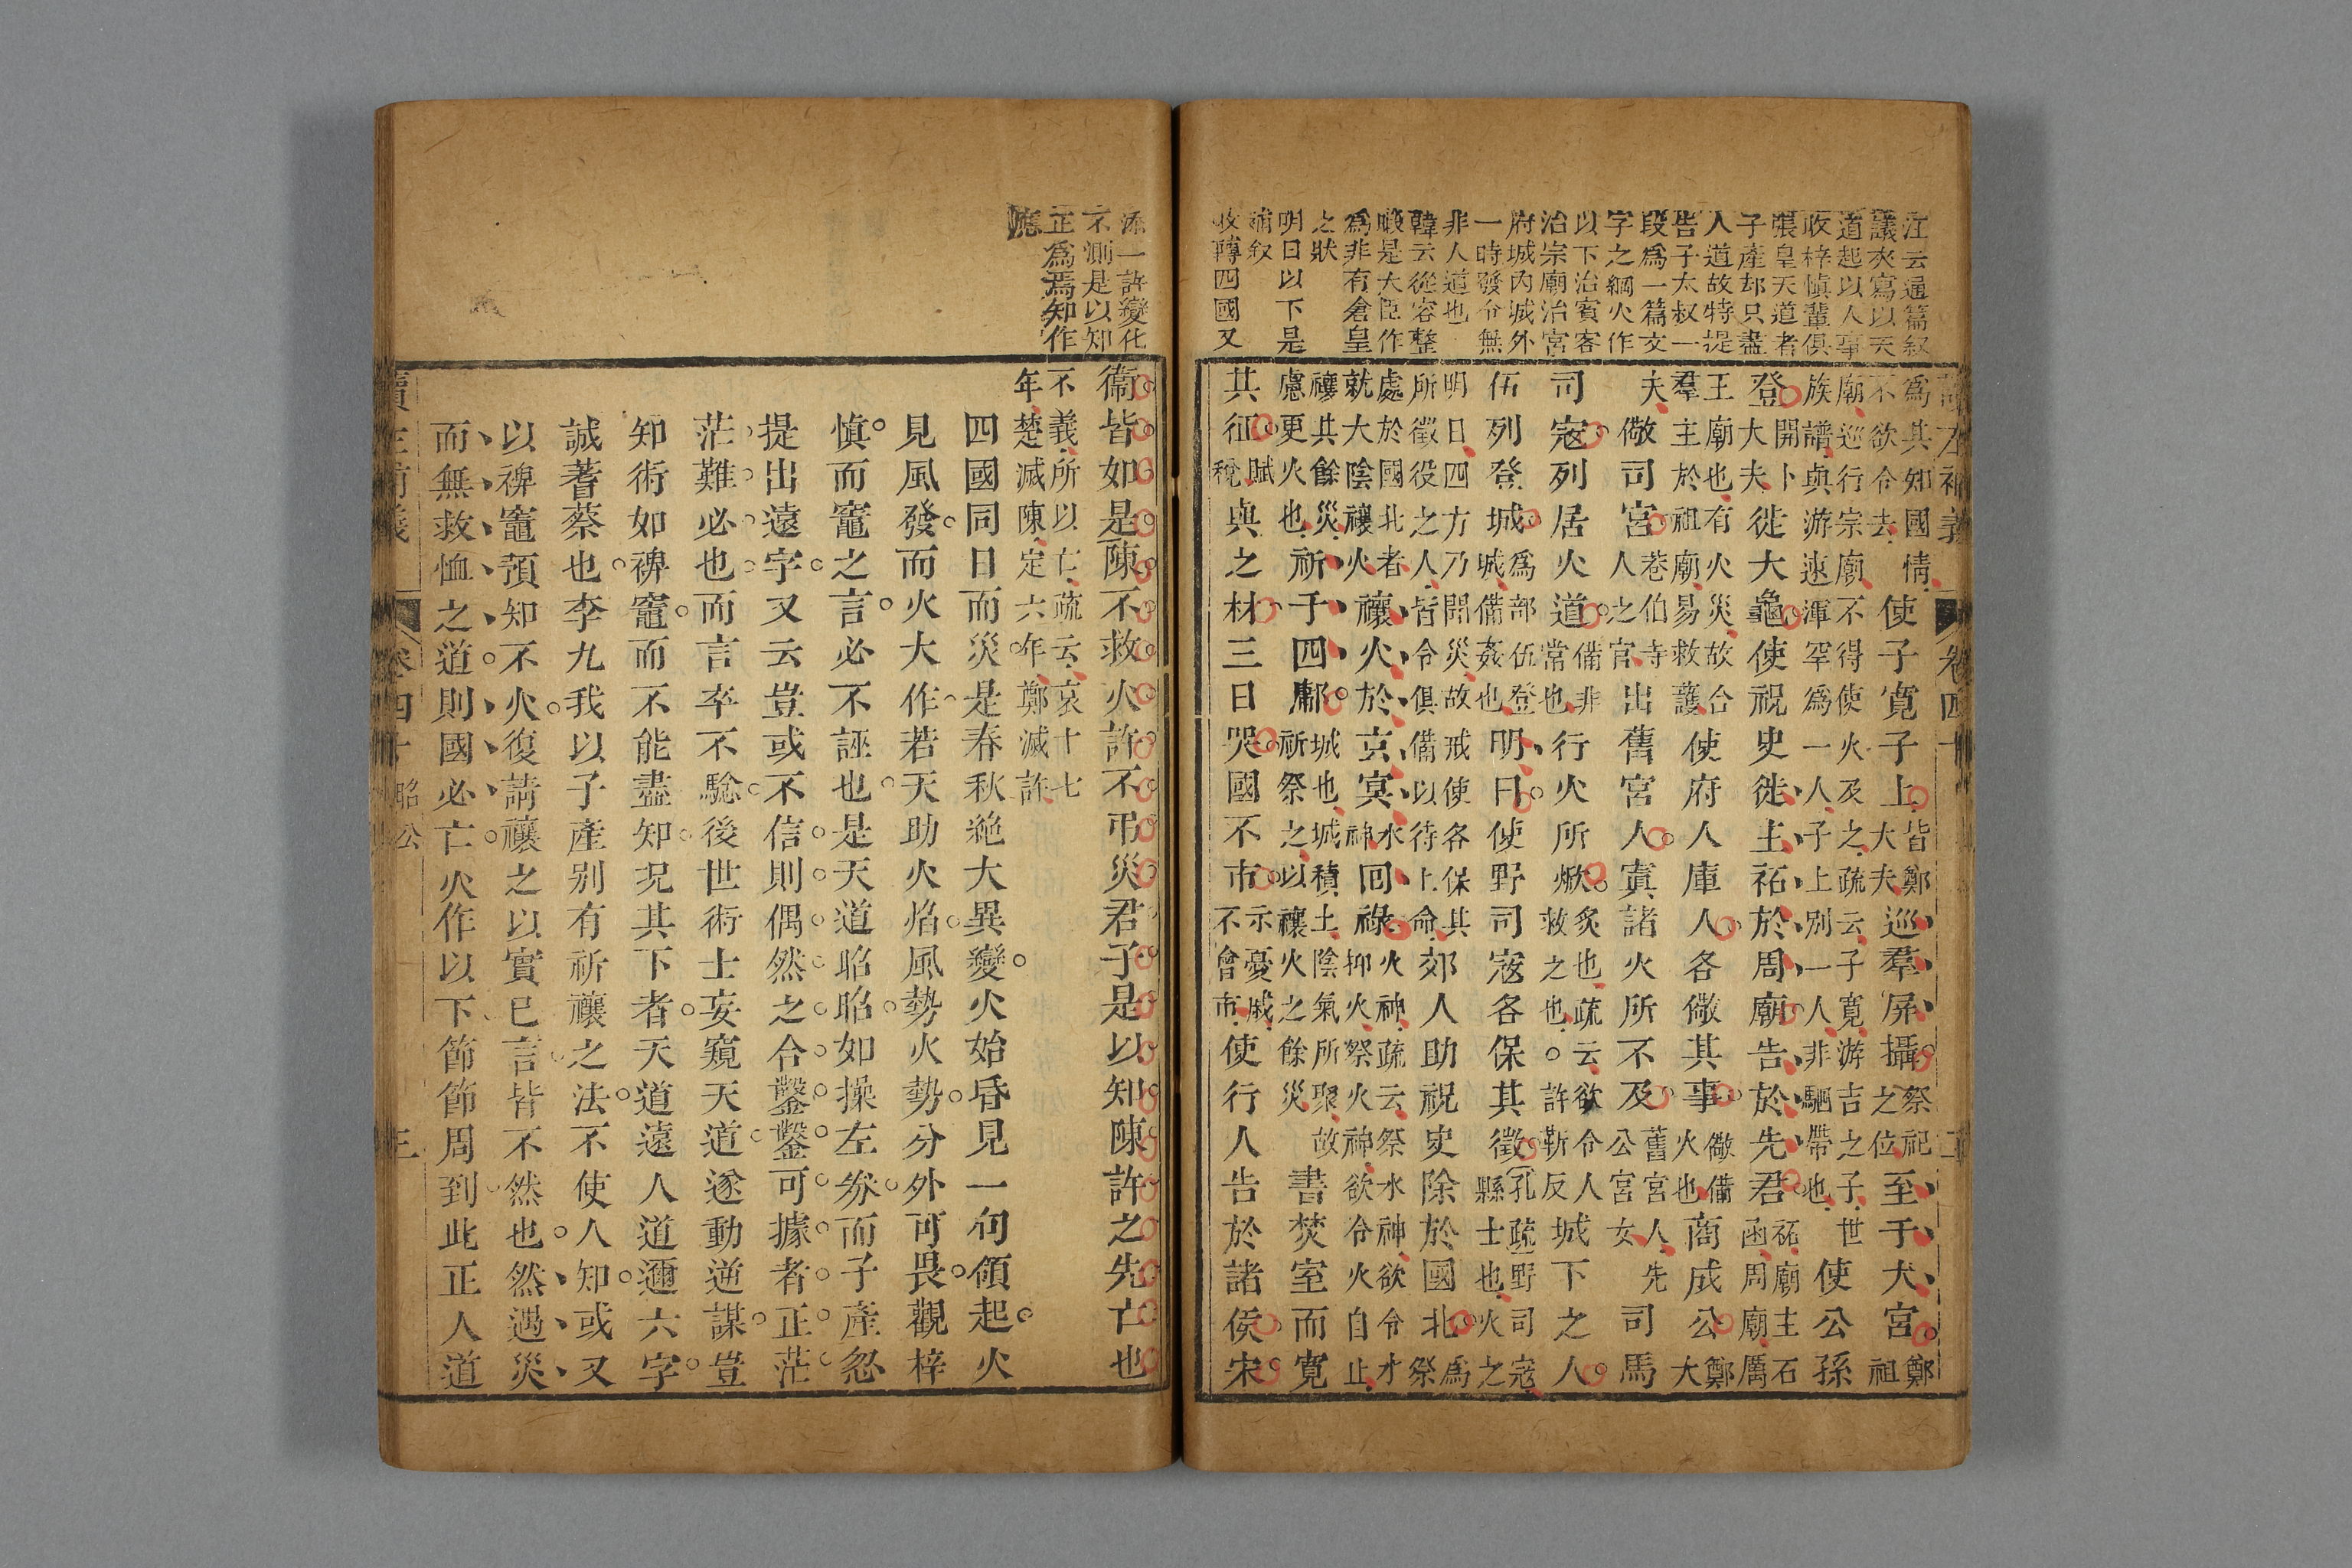 汪云通篇叙
議夾寫以天
道起以人事
收梓慎輩俱
張皇天道者
子產却只盡
人道故特提
告子太叔一
段為一篇文
字之綱火作
以下治賓客
治宗廟治宮
府城內城外
一時發令無
非人道也
韓云從容整
暇是大臣作
為非有倉皇
之狀
明日以下是
補叙
收轉四國又
讀左補義
卷四十
為其知國情
不欲令去
使子寬子上
皆鄭
大夫
巡羣屏攝
祭祀
之位
至于大宮
鄭
祖
廟巡行宗廟不得使火及之疏云子寬游吉之子世
族譜與游速渾罕為一人子上別一人非駟帶也
使公孫
登
開卜
大夫
徙大龜使祝史徙主祏於周廟告於先君
祏廟主石
函周廟厲
王廟也有火災故合
羣主於祖廟易救護
使府人庫人各儆其事
儆備
火也
商成公
鄭
大
夫
儆司宮
巷伯寺
人之官
出舊宮人寘諸火所不及
舊宮人先
公宮女
司馬
司寇列居火道
備非
常也
行火所焮
炙也疏云欲令人
救之也○許靳反
城下之人
伍列登城
為部伍登
城備姦也
明日使野司寇各保其徵
孔疏野司寇
縣士也火之
明日四方乃聞災故戒使各保其
所徵役之人皆令俱備以待上命
郊人助祝史除於國北
為
祭
處於國北者
就大陰禳火
禳火於玄冥
水
神
回祿
火神疏云祭水神欲令水
抑火祭火神欲令火自止
禳其餘災
慮更火也
祈于四鄘
城也城積土陰氣所聚故
祈祭之以禳火之餘災
書焚室而寬
其征
賦
稅
與之材三日哭國不市
示憂戚
不會市
使行人告於諸侯宋
添一許變化
不測是以知
正為焉知作
應
衞皆如是陳不救火許不弔災君子是以知陳許之先亡也
不義所以亡疏云哀十七
年楚滅陳定六年鄭滅許
四國同日而災是春秋絶大異變火始昏見一句領起火
見風發而火大作若天助火焰風勢火勢分外可畏觀梓
慎而竈之言必不誣也是天道昭昭如操左券而子產忽
提出遠字又云豈或不信則偶然之合鑿鑿可據者正茫
茫難必也而言卒不驗後世術士妄窺天道遂動逆謀豈
知術如裨竈而不能盡知况其下者天道遠人道邇六字
誠蓍蔡也李九我以子產别有祈禳之法不使人知或又
以裨竈預知不火復請禳之以實已言皆不然也然遇災
而無救恤之道則國必亡火作以下節節周到此正人道
卷四十
昭公
三